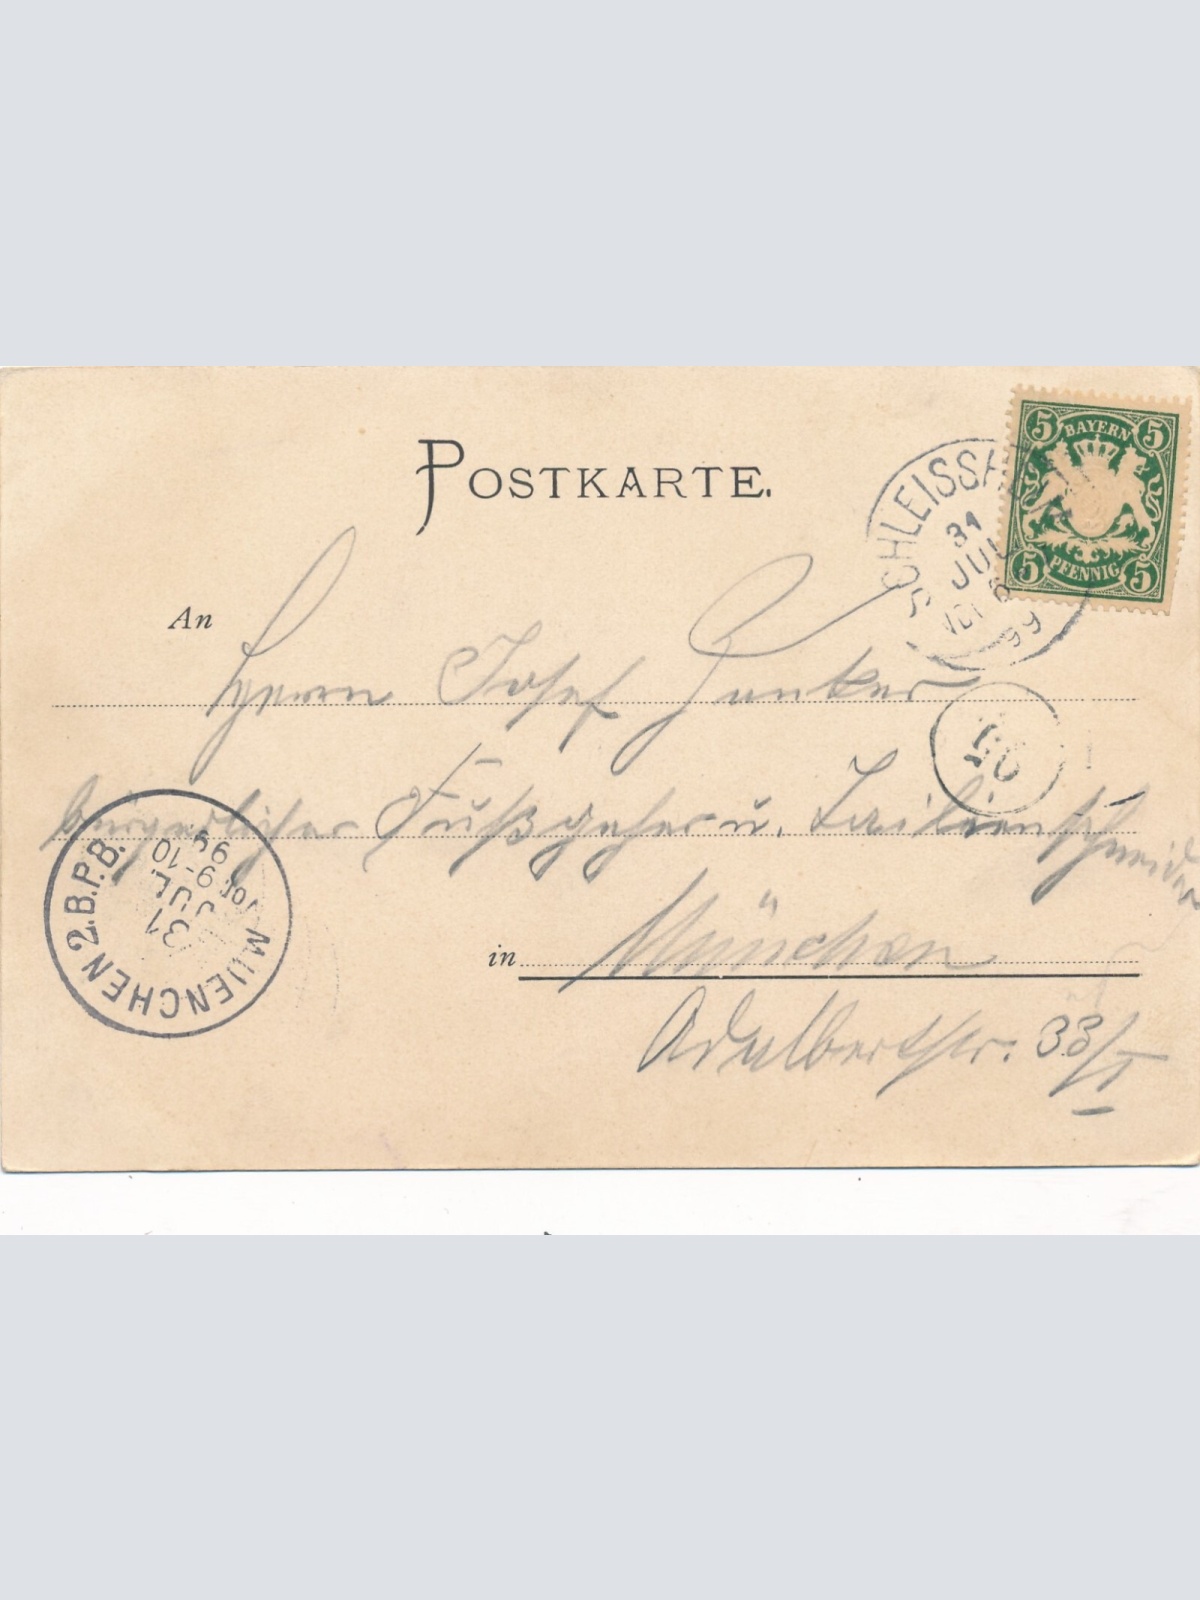 POSTKARTE.
5 BAYERN 5
5 PFENNIG 5
SCHLEISSHEIM
31
JUL
99
An Herrn Josef Junker
bürgerlicher Fußgeher u.
in München
Adalbertstr. 33/I
MUENCHEN 2.B.P.B.
31
JUL
Vor. 9-10
99